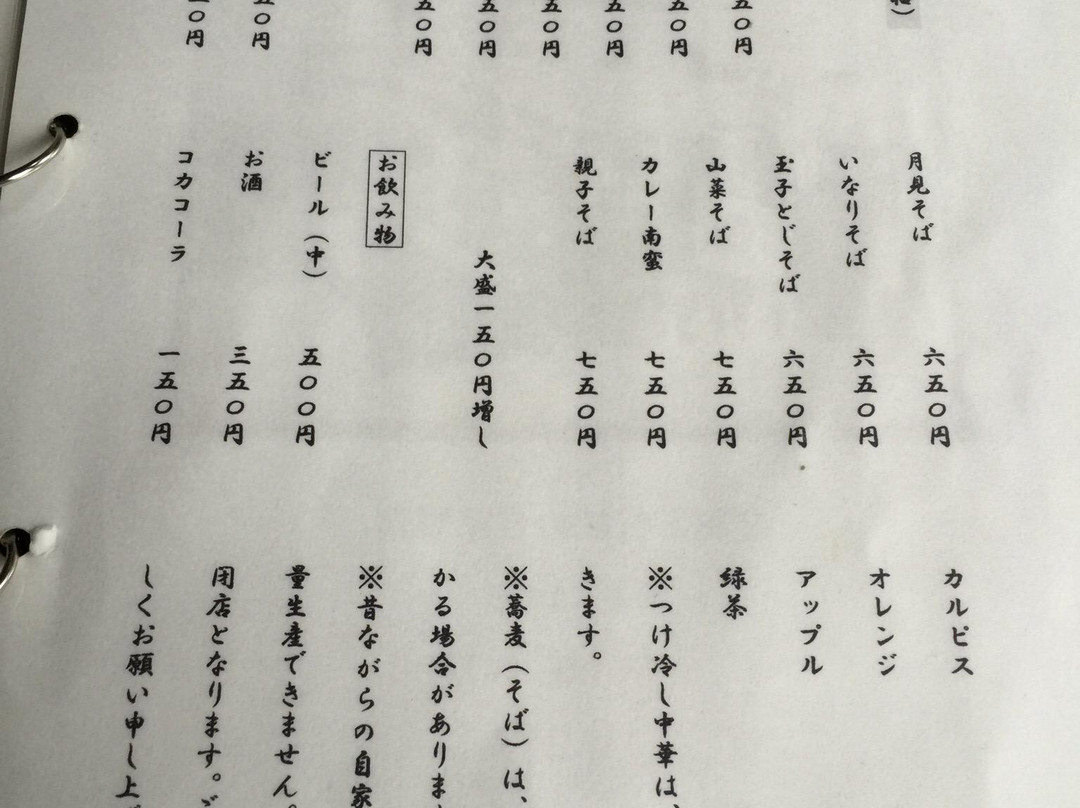 五〇円
五〇円
五〇円
五〇円
五〇円
五〇円
五〇円
〇円
月見そば 六五〇円
いなりそば 六五〇円
玉子とじそば 六五〇円
山菜そば 七五〇円
カレー南蛮 七五〇円
親子そば 七五〇円
大盛一五〇円増し
お飲み物
ビール（中） 五〇〇円
お酒 三五〇円
コカコーラ 一五〇円
カルピス
オレンジ
アップル
緑茶
※つけ冷し中華は、
きます。
※蕎麦（そば）は、
かる場合がありま
※昔ながらの自家
量生産できません。
閉店となります。ご
しくお願い申し上